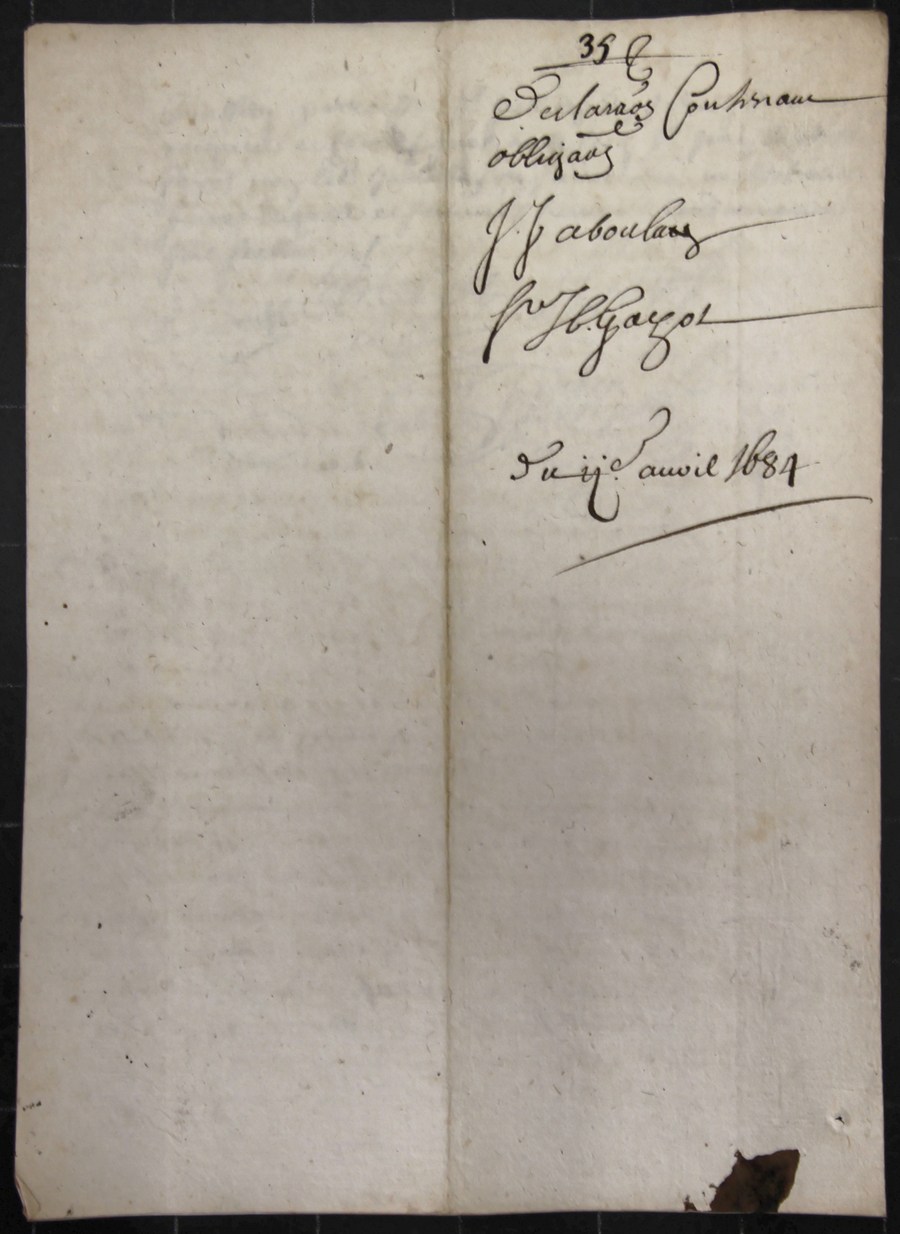 35 e
Declaraõn Contenant
obligaõn
J. Jaboulay
Sr. Jb. Gayot
du ii.e avril 1684